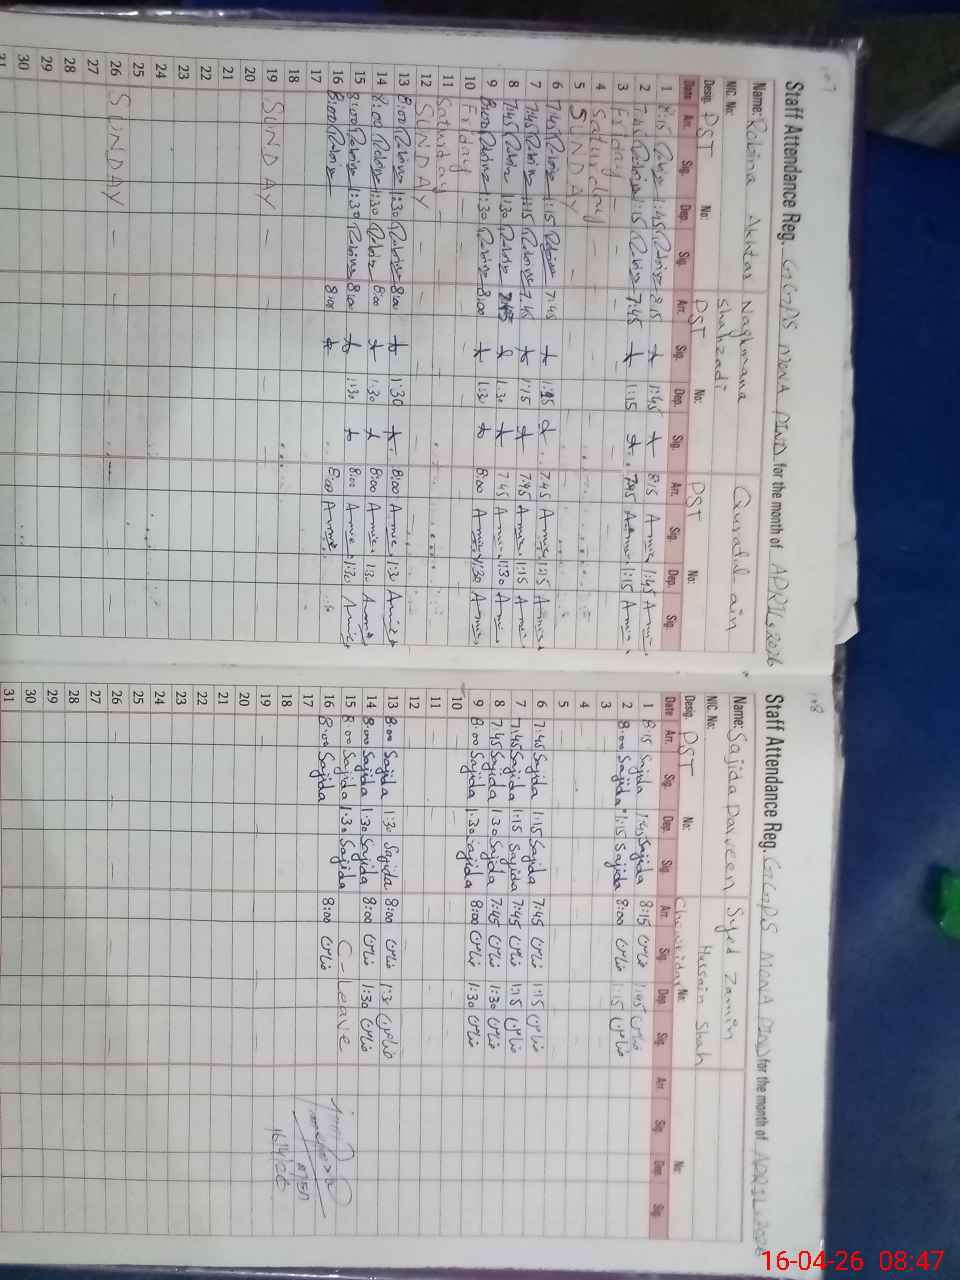 Staff Attendance Reg. GGPS MONA PIND for the month of APRIL, 2026
Name: Robina Akhtar Naghmana Shahzadi Quratul-ain
NIC. No:
Desig. PST No: PST No: PST No:
Date Arr. Sig. Dep. Sig. Arr. Sig. Dep. Sig. Arr. Sig. Dep. Sig.
1 8:15 Robina 1:45 Robina 8:15 1:45 8:15 1:45
2 7:45 Robina 1:15 Robina 7:45 1:15 7:45 1:15
3 Friday
4 Saturday
5 SUNDAY
6 7:45 Robina 1:15 Robina 7:45 1:15 7:45 1:15
7 7:45 Robina 1:15 Robina 7:45 1:15 7:45 1:15
8 7:45 Robina 1:30 Robina 7:45 1:30 7:45 1:30
9 8:00 Robina 1:30 Robina 8:00 1:30 8:00 1:30
10 Friday
11 Saturday
12 SUNDAY
13 8:00 Robina 1:30 Robina 8:00 1:30 8:00 1:30
14 8:00 Robina 1:30 Robina 8:00 1:30 8:00 1:30
15 8:00 Robina 1:30 Robina 8:00 1:30 8:00 1:30
16 8:00 Robina 8:00 8:00
17
18
19 SUNDAY
20
21
22
23
24
25
26 SUNDAY
27
28
29
30
31
168
Staff Attendance Reg. GGPS MONA PIND for the month of APRIL, 2026
Name: Sajida Parveen Syed Zamin Hussain Shah
NIC. No:
Desig. PST No: Chowkidar No: No:
Date Arr. Sig. Dep. Sig. Arr. Sig. Dep. Sig. Arr. Sig. Dep. Sig.
1 8:15 Sajida 1:45 Sajida 8:15 1:45
2 8:00 Sajida 1:15 Sajida 8:00 1:15
3
4
5
6 7:45 Sajida 1:15 Sajida 7:45 1:15
7 7:45 Sajida 1:15 Sajida 7:45 1:15
8 7:45 Sajida 1:30 Sajida 7:45 1:30
9 8:00 Sajida 1:30 Sajida 8:00 1:30
10
11
12
13 8:00 Sajida 1:30 Sajida 8:00 1:30
14 8:00 Sajida 1:30 Sajida 8:00 1:30
15 8:00 Sajida 1:30 Sajida C-Leave
16 8:00 Sajida 8:00
17
18
19
20
21
22
23
24
25
26
27
28
29
30
31
16/4/26
16-04-26 08:47